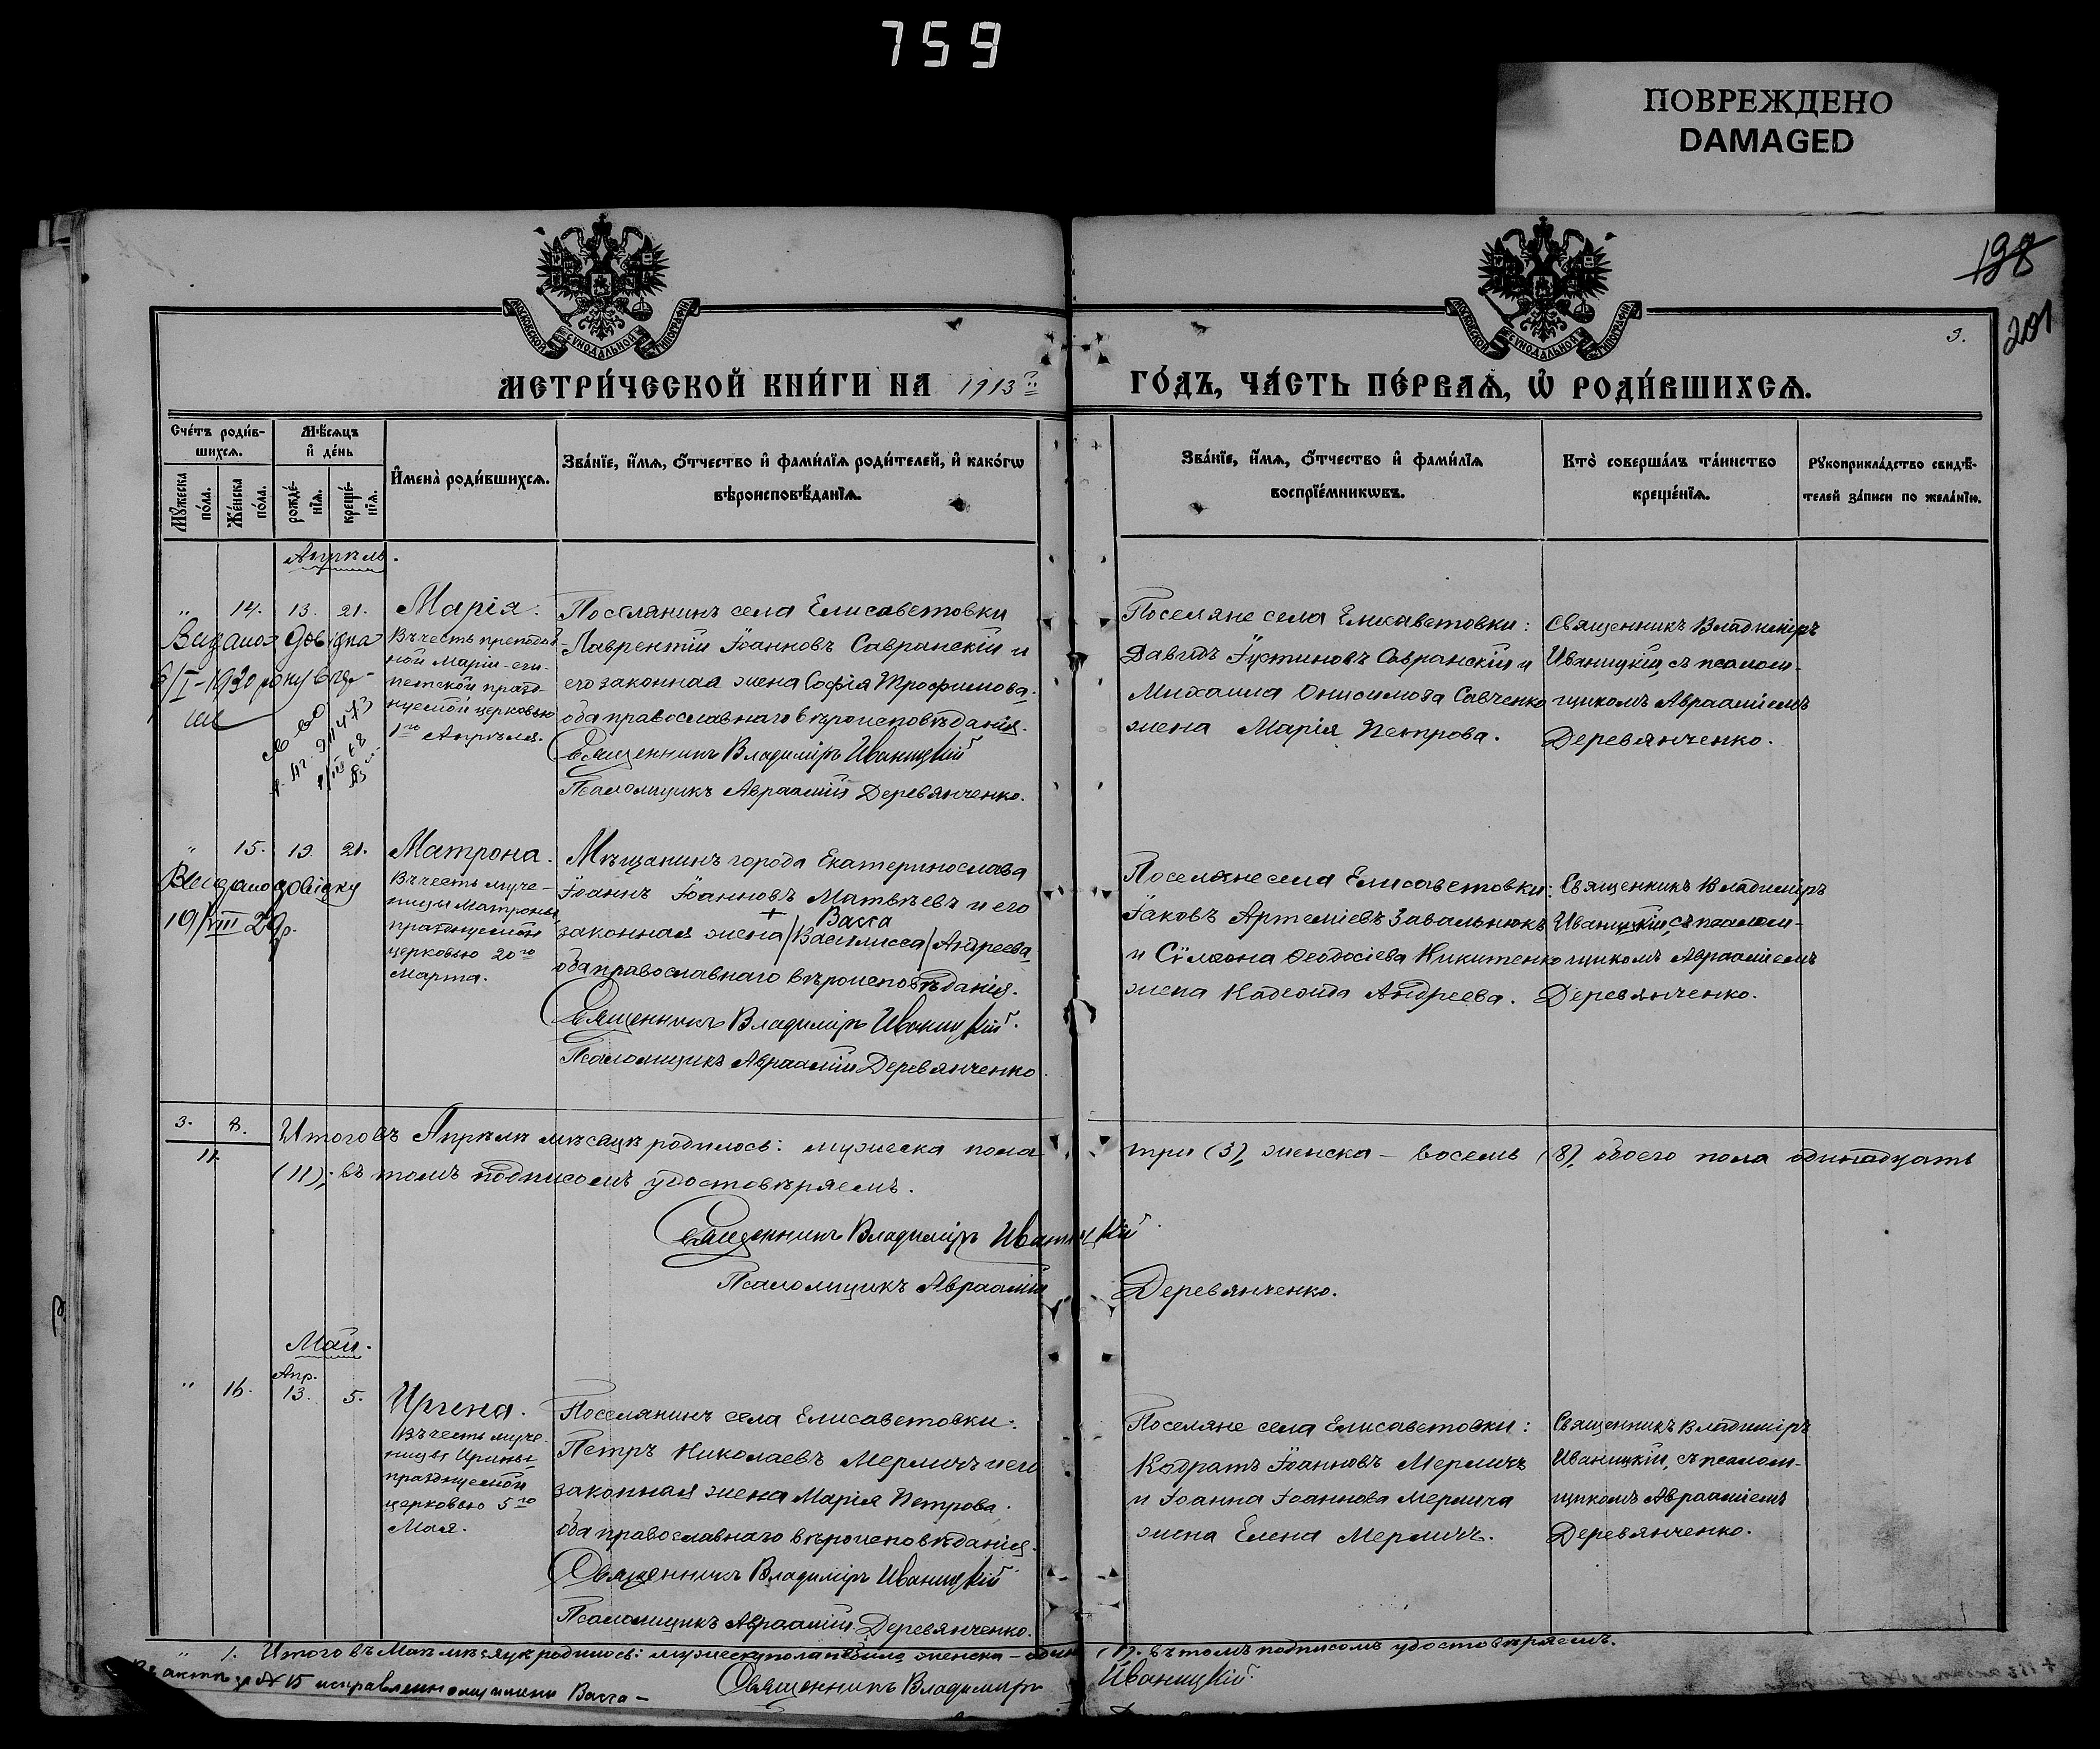 759
ПОВРЕЖДЕНО
DAMAGED
198
201
3.
МОСКОВСКОЙ СѴНОДАЛЬНОЙ ТИПОГРАФІИ
МОСКОВСКОЙ СѴНОДАЛЬНОЙ ТИПОГРАФІИ
МЕТРИ́ЧЕСКОЙ КНИ́ГИ НА 1913й ГО́ДЪ, ЧА́СТЬ ПЕ́РВАѦ, Ѡ҆ РОДИ́ВШИХСѦ.
Сче́тъ роди́в-
шихсѧ.
Мꙋ́жеска по́ла.
Же́нска по́ла.
Мѣ́сѧцъ
и҆ де́нь
рожде́-
нїѧ.
креще́-
нїѧ.
И҆мена̀ роди́вшихсѧ.
Зва́нїе, и҆́мѧ, ѻ҆́тчество и҆ фами́лїѧ роди́телей, и҆ како́гѡ
вѣроисповѣ́данїѧ.
Зва́нїе, и҆́мѧ, ѻ҆́тчество и҆ фами́лїѧ
воспрїе́мникѡвъ.
Кто̀ соверша́лъ та́инство
креще́нїѧ.
Рꙋкоприкла́дство свидѣ́-
телей за́писи по жела́нїю.
Апрѣль.
" 14. 13. 21.
Марія.
Въ честь преподоб-
ной Маріи - еги-
петской празд-
нуемой церковью
1го Апрѣля.
Поселянинъ села Елисаветовки
Лаврентій Іоанновъ Савранскій и
его законная жена Софія Трофимова.
оба православнаго вѣроисповѣданія.
Священникъ Владиміръ Иваницкій
Псаломщикъ Авраамій Деревянченко.
Поселяне села Елисаветовки:
Давидъ Іустиновъ Савранскій и
Михаила Онисимова Савченко
жена Марія Петрова.
Священникъ Владиміръ
Иваницкій, съ псалом-
щикомъ Авраамiемъ
Деревянченко.
Видана довідка
6/I-1930 року
" 15. 19. 21.
Видано довідку
19/VIII 29р.
Матрона.
Въ честь муче-
ницы Матроны
празднуемой
церковью 20го
Марта.
Мѣщанинъ города Екатеринослава
Іоаннъ Іоанновъ Матвѣевъ и его
+ Васса
законная жена /Василисса/ Андреева.
оба православнаго вѣроисповѣданія.
Священникъ Владиміръ Иваницкій.
Псаломщикъ Авраамій Деревянченко.
Поселяне села Елисаветовки:
Іаковъ Артеміевъ Завальнюкъ
и Сѵмеона Ѳеодосіева Никитенко
жена Андреева.
Священникъ Владиміръ
Иваницкій, съ псалом-
щикомъ Авраамiемъ
Деревянченко.
3. 8.
11.
Итого въ Апрѣлѣ мѣсяцѣ родилось: мужеска пола три (3), женска - восемь (8), обоего пола одинадцать
(11); въ томъ подписомъ удостовѣряемъ.
Священникъ Владиміръ Иваницкій.
Псаломщикъ Авраамій Деревянченко.
Май.
Апр.
" 16. 13. 5.
Ирина.
Въ честь муче-
ницы Ирины
празднуемой
церковью 5го
Мая.
Поселянинъ села Елисаветовки:
Петръ Николаевъ Мерличъ и его
законная жена Марія Петрова.
оба православнаго вѣроисповѣданія.
Священникъ Владиміръ Иваницкій
Псаломщикъ Авраамій Деревянченко.
Поселяне села Елисаветовки:
Кодратъ Іоанновъ Мерличъ
и Іоанна Іоаннова Мерлича
жена Елена Мерличъ.
Священникъ Владиміръ
Иваницкій, съ псалом-
щикомъ Авраамiемъ
Деревянченко.
" 1. Итого въ Маѣ мѣсяцѣ родилось: мужеска пола небыло женска - одна (1). въ томъ подписомъ удостовѣряемъ.
Священникъ Владиміръ Иваницкій.
Въ актѣ за № 15 исправленному имени Васса -